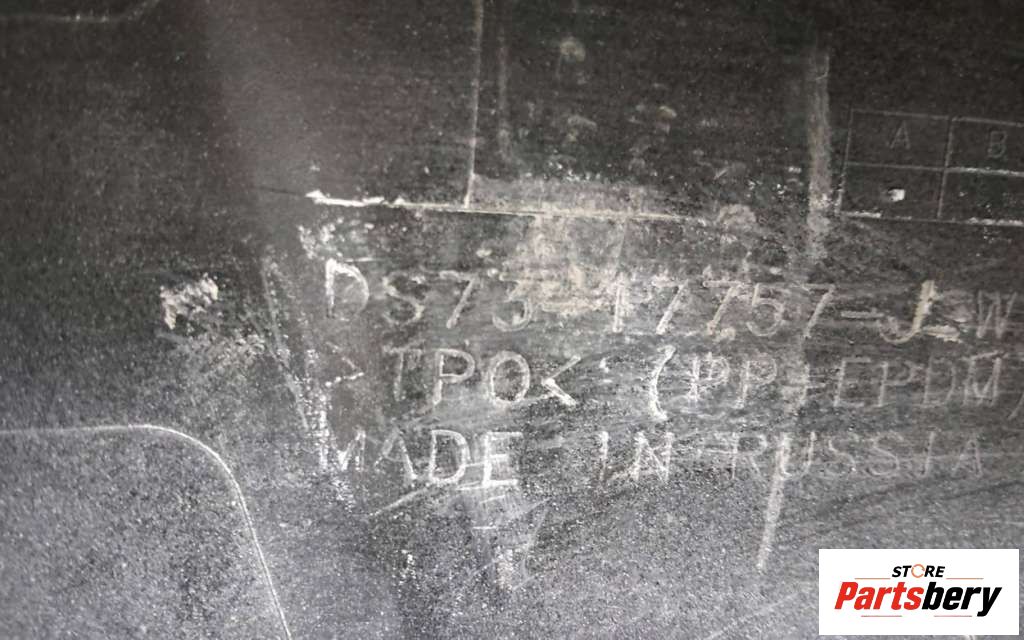 A B
DS73-17757-J W
>TPO< (PP+EPDM)
MADE IN RUSSIA
STORE
Partsbery